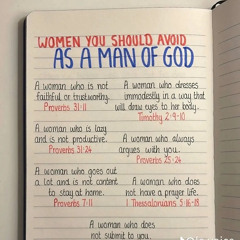 WOMEN YOU SHOULD AVOID
AS A MAN OF GOD
A woman who is not
faithful or trustworthy.
Proverbs 31:11
A woman who dresses
immodestly in a way that
will draw eyes to her body.
Timothy 2:9-10
A woman who is lazy
and is not productive.
Proverbs 31:24
A woman who always
argues with you.
Proverbs 25:24
A woman who goes out
a lot and is not content
to stay at home.
Proverbs 7:11
A woman who does
not have a prayer life.
1 Thessalonians 5:16-18
A woman who does
not submit to you.